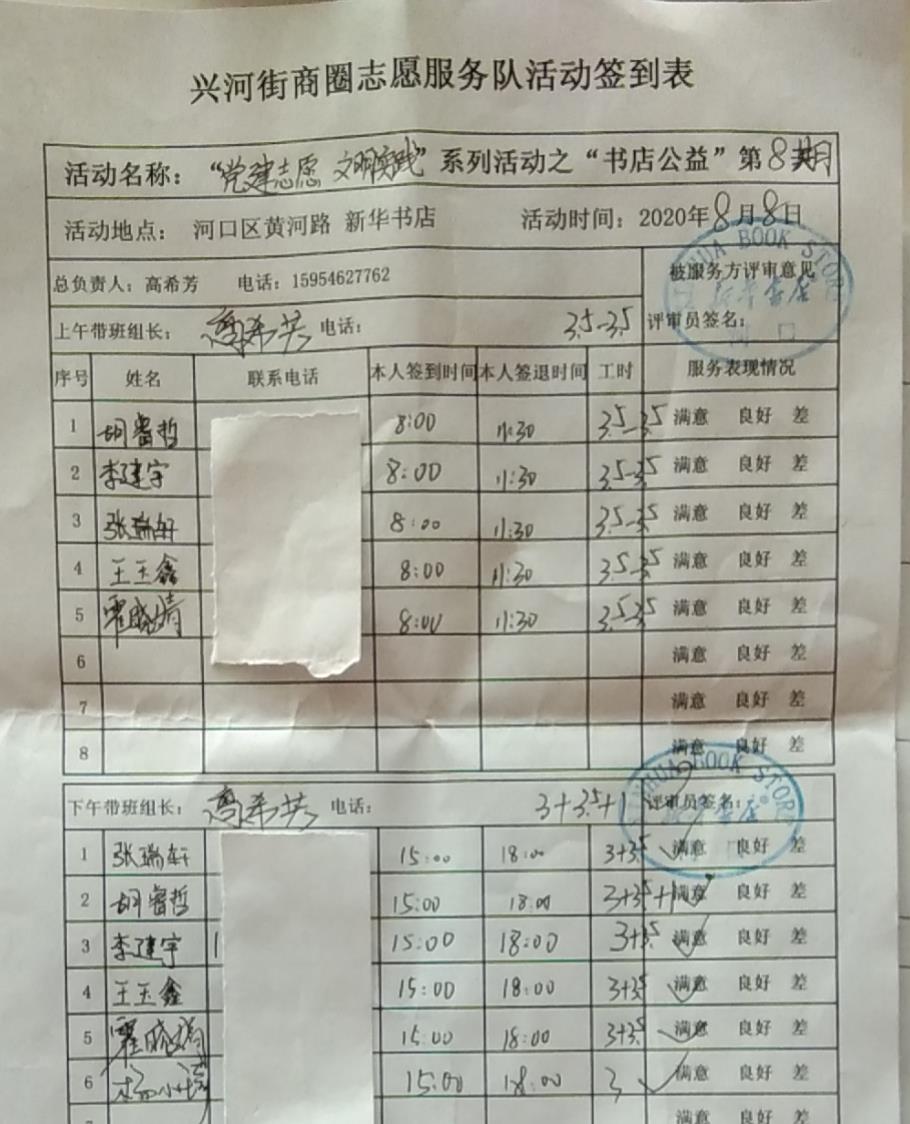 兴河街商圈志愿服务队活动签到表
活动名称：“党建志愿 文明实践”系列活动之“书店公益”第8期
活动地点： 河口区黄河路 新华书店 活动时间：2020年8月8日
总负责人：高希芳 电话：15954627762 被服务方评审意见
上午带班组长： 高希芳 电话： 3.5-3.5 评审员签名：
XINHUA BOOK STORE
新华书店
河口
序号 姓名 联系电话 本人签到时间 本人签退时间 工时 服务表现情况
1 胡睿哲 8:00 11:30 3.5-3.5 满意 良好 差
2 李建宇 8:00 11:30 3.5-3.5 满意 良好 差
3 张瑞轩 8:00 11:30 3.5-3.5 满意 良好 差
4 王玉鑫 8:00 11:30 3.5-3.5 满意 良好 差
5 霍晓倩 8:00 11:30 3.5-3.5 满意 良好 差
6 满意 良好 差
7 满意 良好 差
8 满意 良好 差
下午带班组长： 高希芳 电话： 3+3.5+1 评审员签名：
XINHUA BOOK STORE
新华书店
1 张瑞轩 15:00 18:00 3+3.5 ✓ 满意 良好 差
2 胡睿哲 15:00 18:00 3+3.5+1 ✓ 满意 良好 差
3 李建宇 1 15:00 18:00 3+3.5 ✓ 满意 良好 差
4 王玉鑫 15:00 18:00 3+3.5 ✓ 满意 良好 差
5 霍晓 15:00 18:00 3+3.5 ✓ 满意 良好 差
6 杨小 15:00 18:00 3 ✓ 满意 良好 差
满意 良好 差